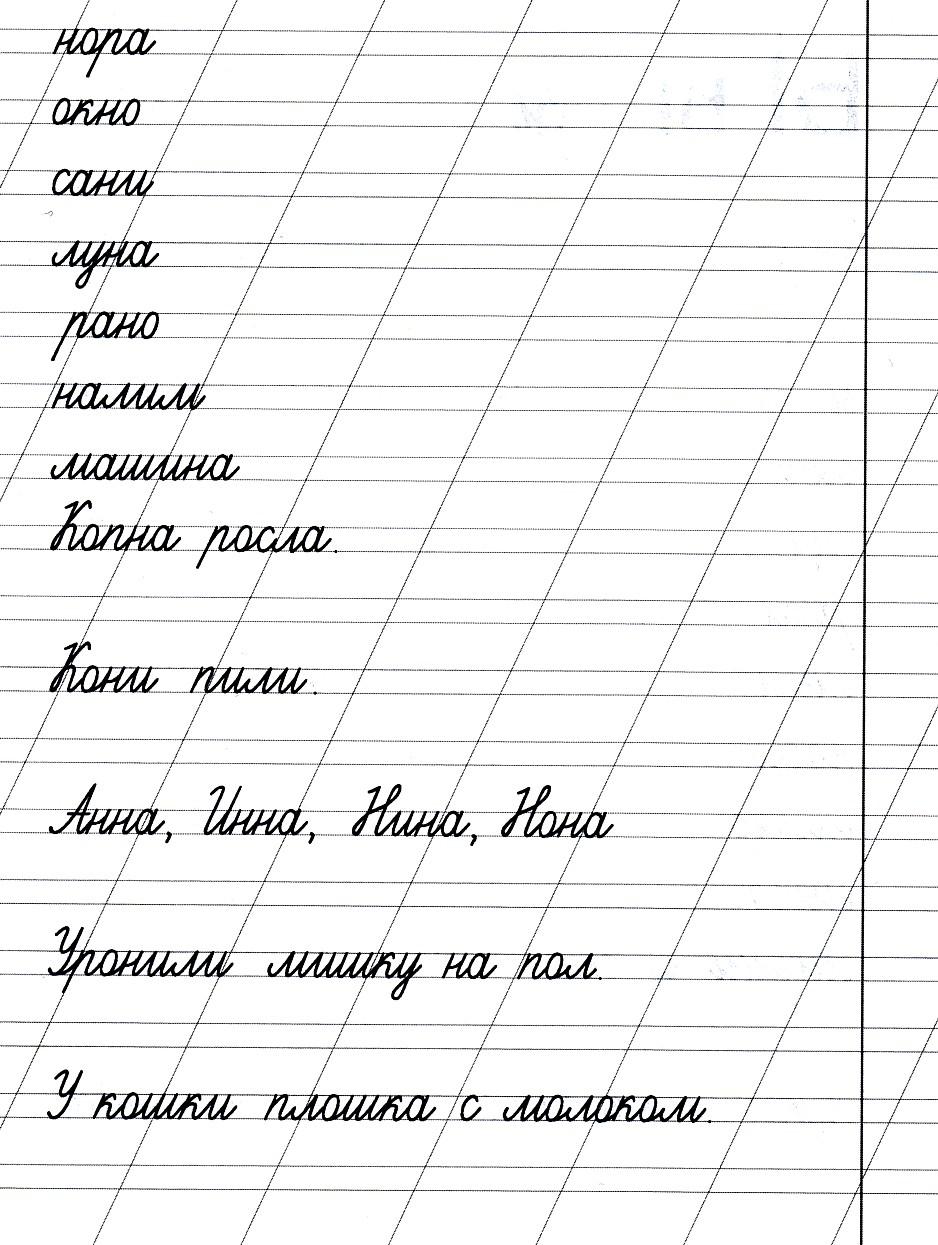 нора
окно
сани
луна
рано
налим
машина
Копна росла.
Кони пили.
Анна, Инна, Нина, Нона
Уронили мишку на пол.
У кошки плошка с молоком.